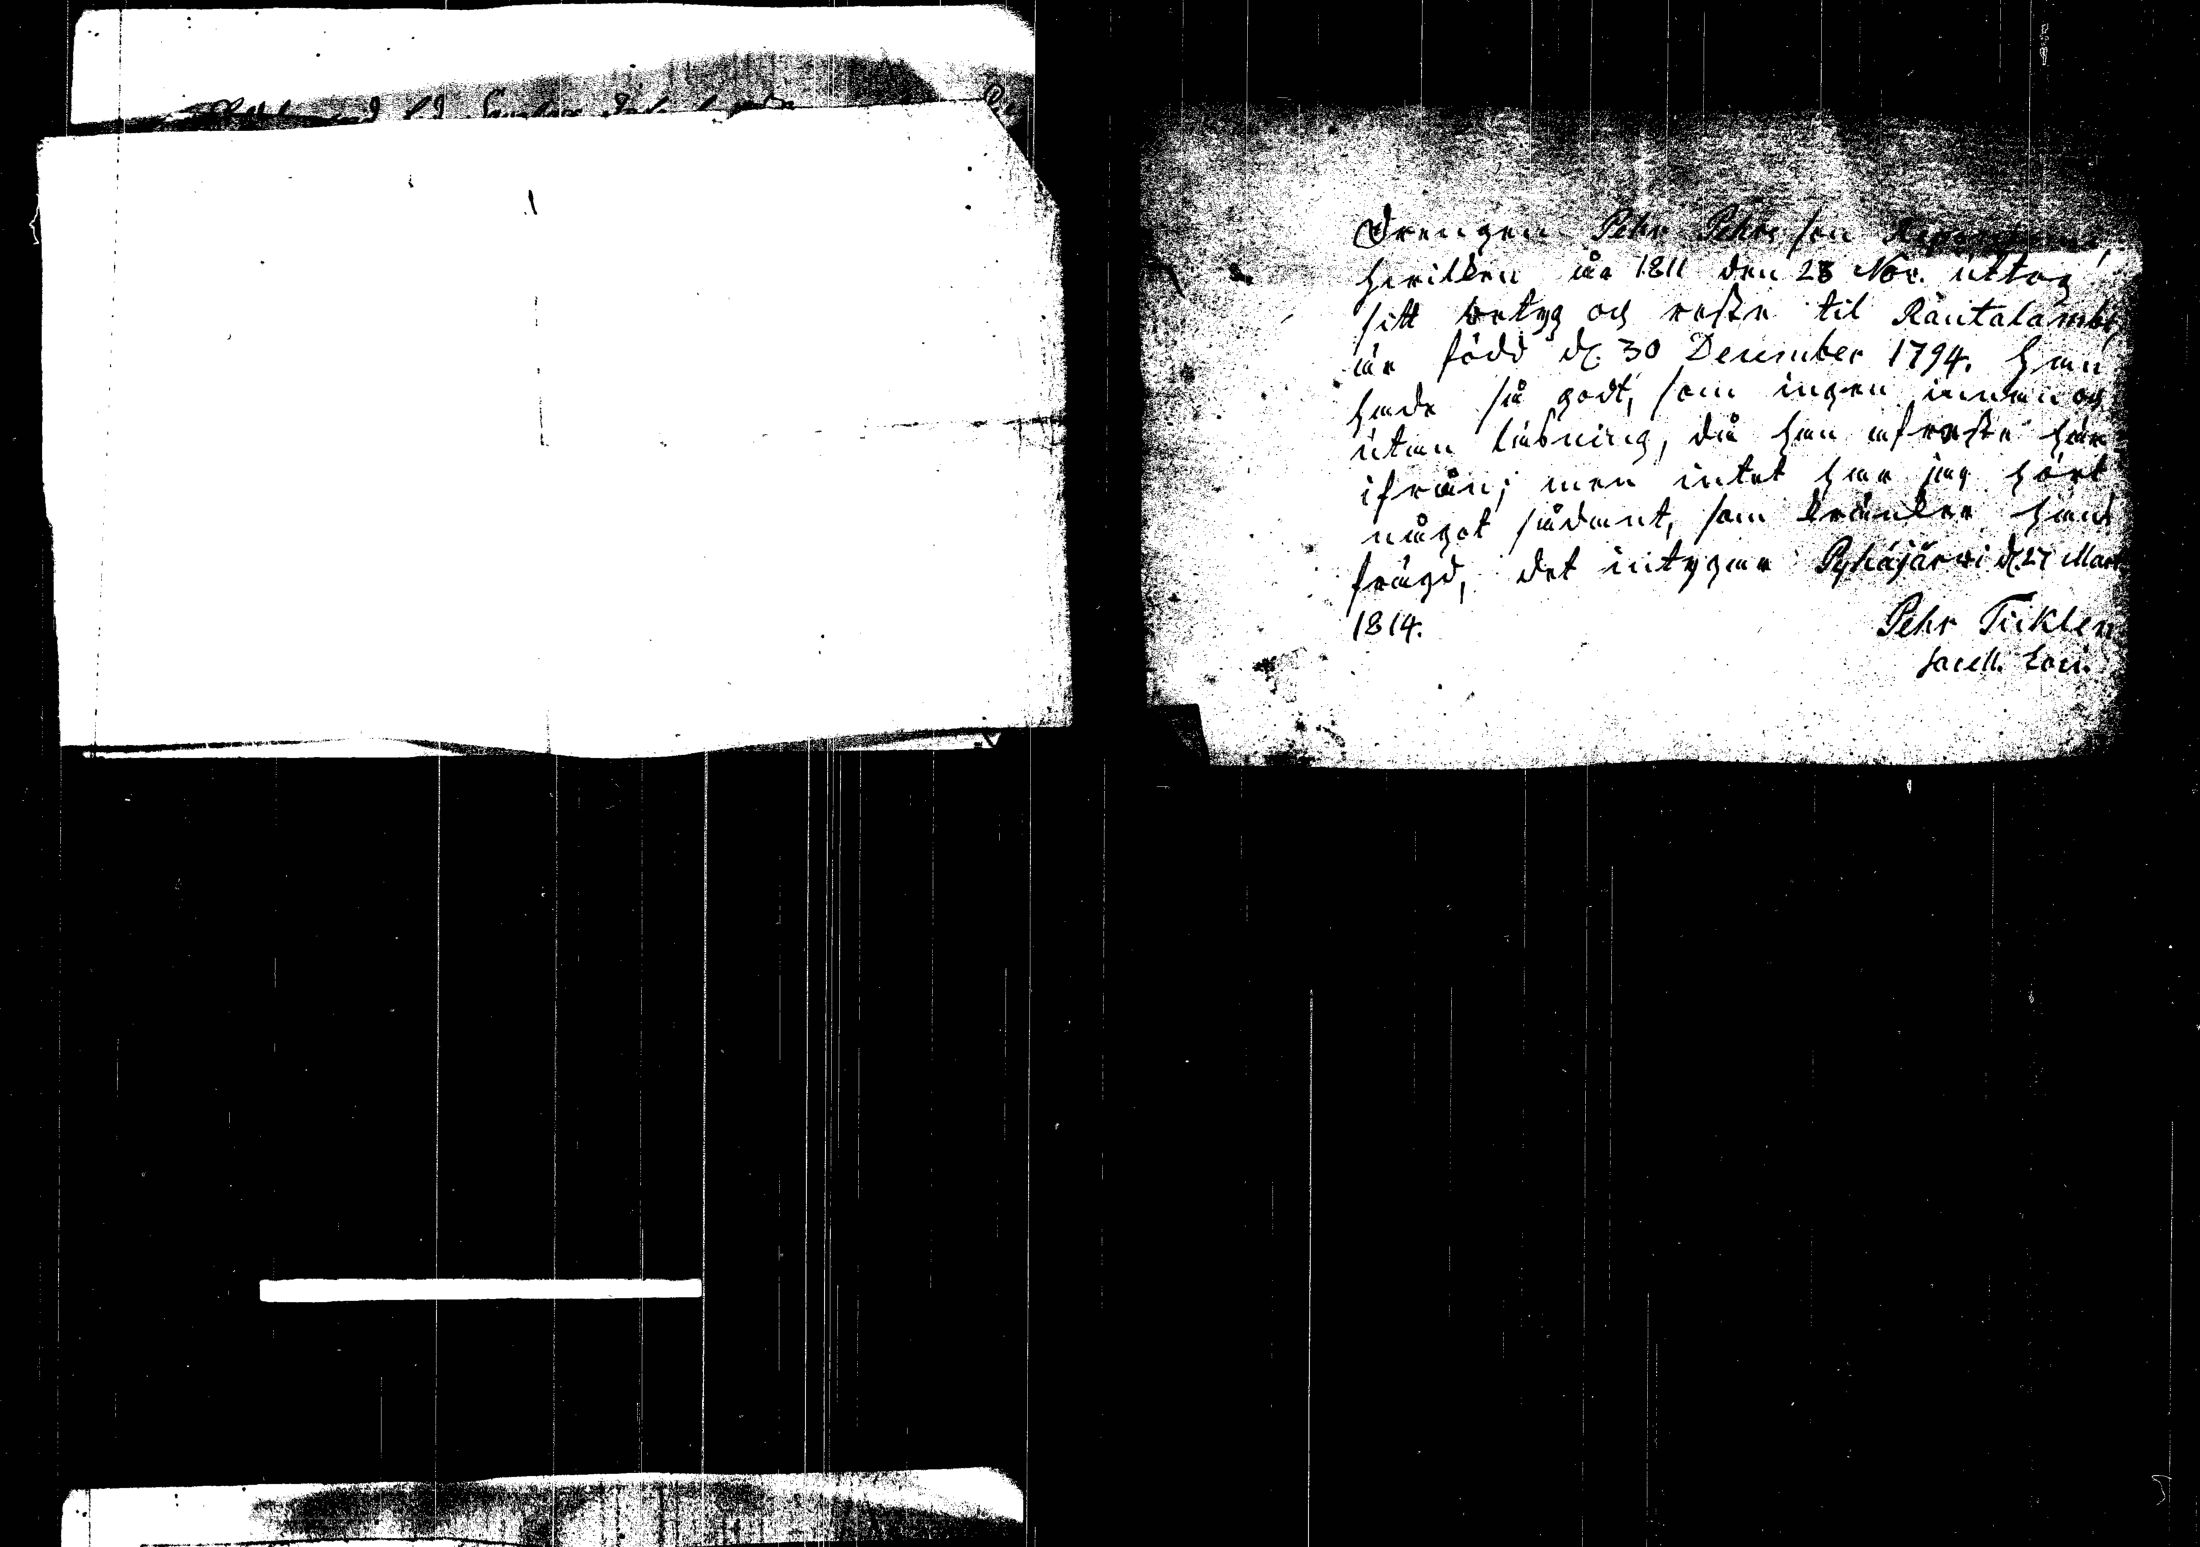 Drengen Pehr Pehrsson
hvilken år 1811 den 28 Nov. uttog
sitt betyg och reste til Rautalambi,
är född d. 30 December 1794. Han
hade så godt, som ingen innan och
utan läsning, då han afreste här
ifrån; men intet har jag hört
något sådant, som kränker hans
frägd, det intygar Pyhäjärwi d. 27 Mart.
1814.
Pehr Ticklen
Sacell. Loci.